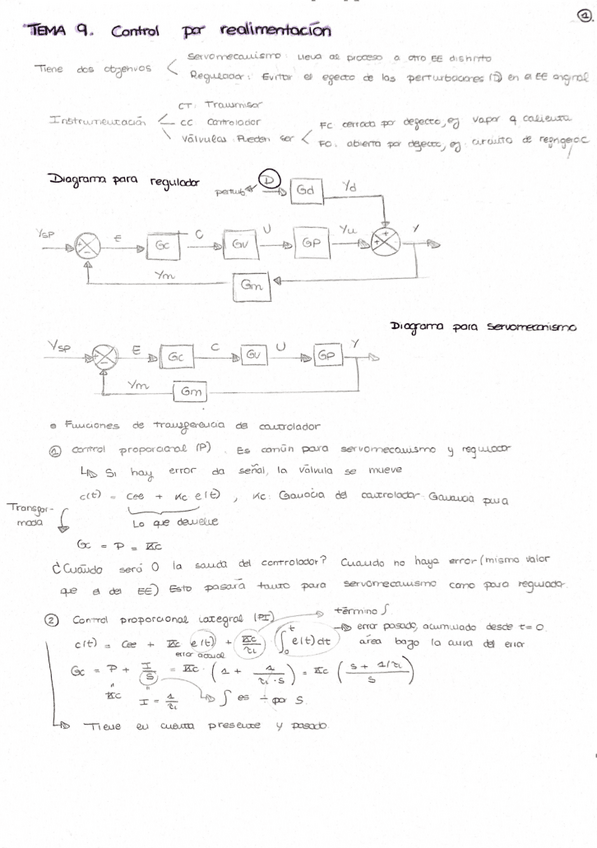 ①
TEMA 9. Control por realimentación
Tiene dos objetivos < Servomecanismo: lleva al proceso a otro EE distinto
Regulador: Evitar el efecto de las perturbaciones (D) en el EE original
CT: Transmisor
Instrumentación CC Controlador
Válvulas. Pueden ser < FC cerrada por defecto, ej vapor q calienta
FO: abierta por defecto, ej: circuito de refrigerac.
Diagrama para regulador
perturb D Gd Yd
Ysp E Gc C Gv U Gp Yu Y
Ym Gm
Diagrama para servomecanismo
Ysp E Gc C Gv U Gp Y
Ym Gm
Funciones de transferencia del controlador
① control proporcional (P). Es común para servomecanismo y regulador
Si hay error da señal, la válvula se mueve
c(t) = cee + Kc e(t), Kc: Ganancia del controlador. Ganancia pura
Transfor-
mada
Lo que devuelve
Gc = P = Kc
¿Cuándo será 0 la salida del controlador? Cuando no haya error (mismo valor
que el del EE) Esto pasará tanto para servomecanismo como para regulador.
② Control proporcional integral (PI)
término ∫
error pasado, acumulado desde t=0.
área bajo la curva del error
c(t) = cee + Kc e(t) + Kc/τi ∫₀ᵗ e(t)dt
error actual
Gc = P + I/S = Kc · (1 + 1/τi·s) = Kc (s + 1/τi / s)
Kc I = 1/τi ∫ es ÷ por S.
Tiene en cuenta presente y pasado.